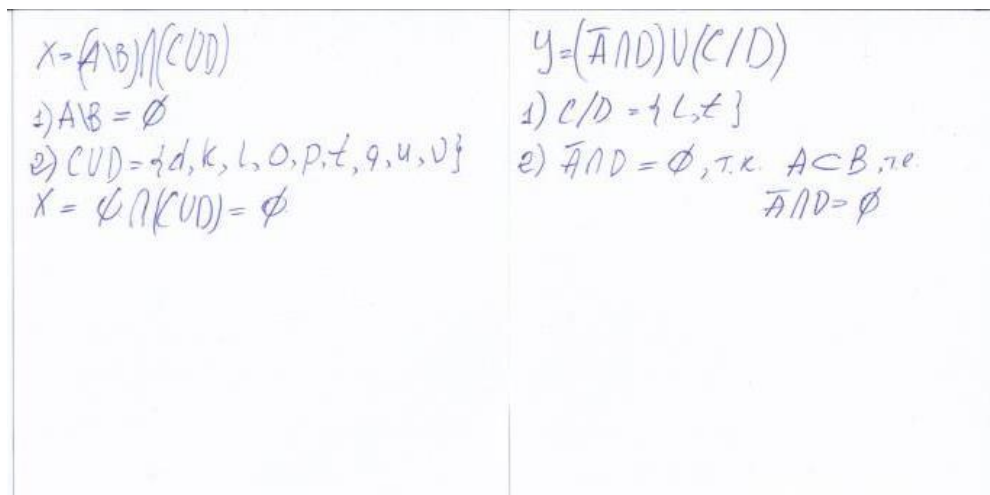 X=(A\B)∩(C∪D)
1) A\B = ∅
2) C∪D={d,k,l,o,p,t,q,u,v}
X = ∅∩(C∪D)= ∅
Y=(A̅∩D)∪(C/D)
1) C/D = {L,t}
2) A̅∩D = ∅, т.к. A⊂B, т.е.
A̅∩D= ∅